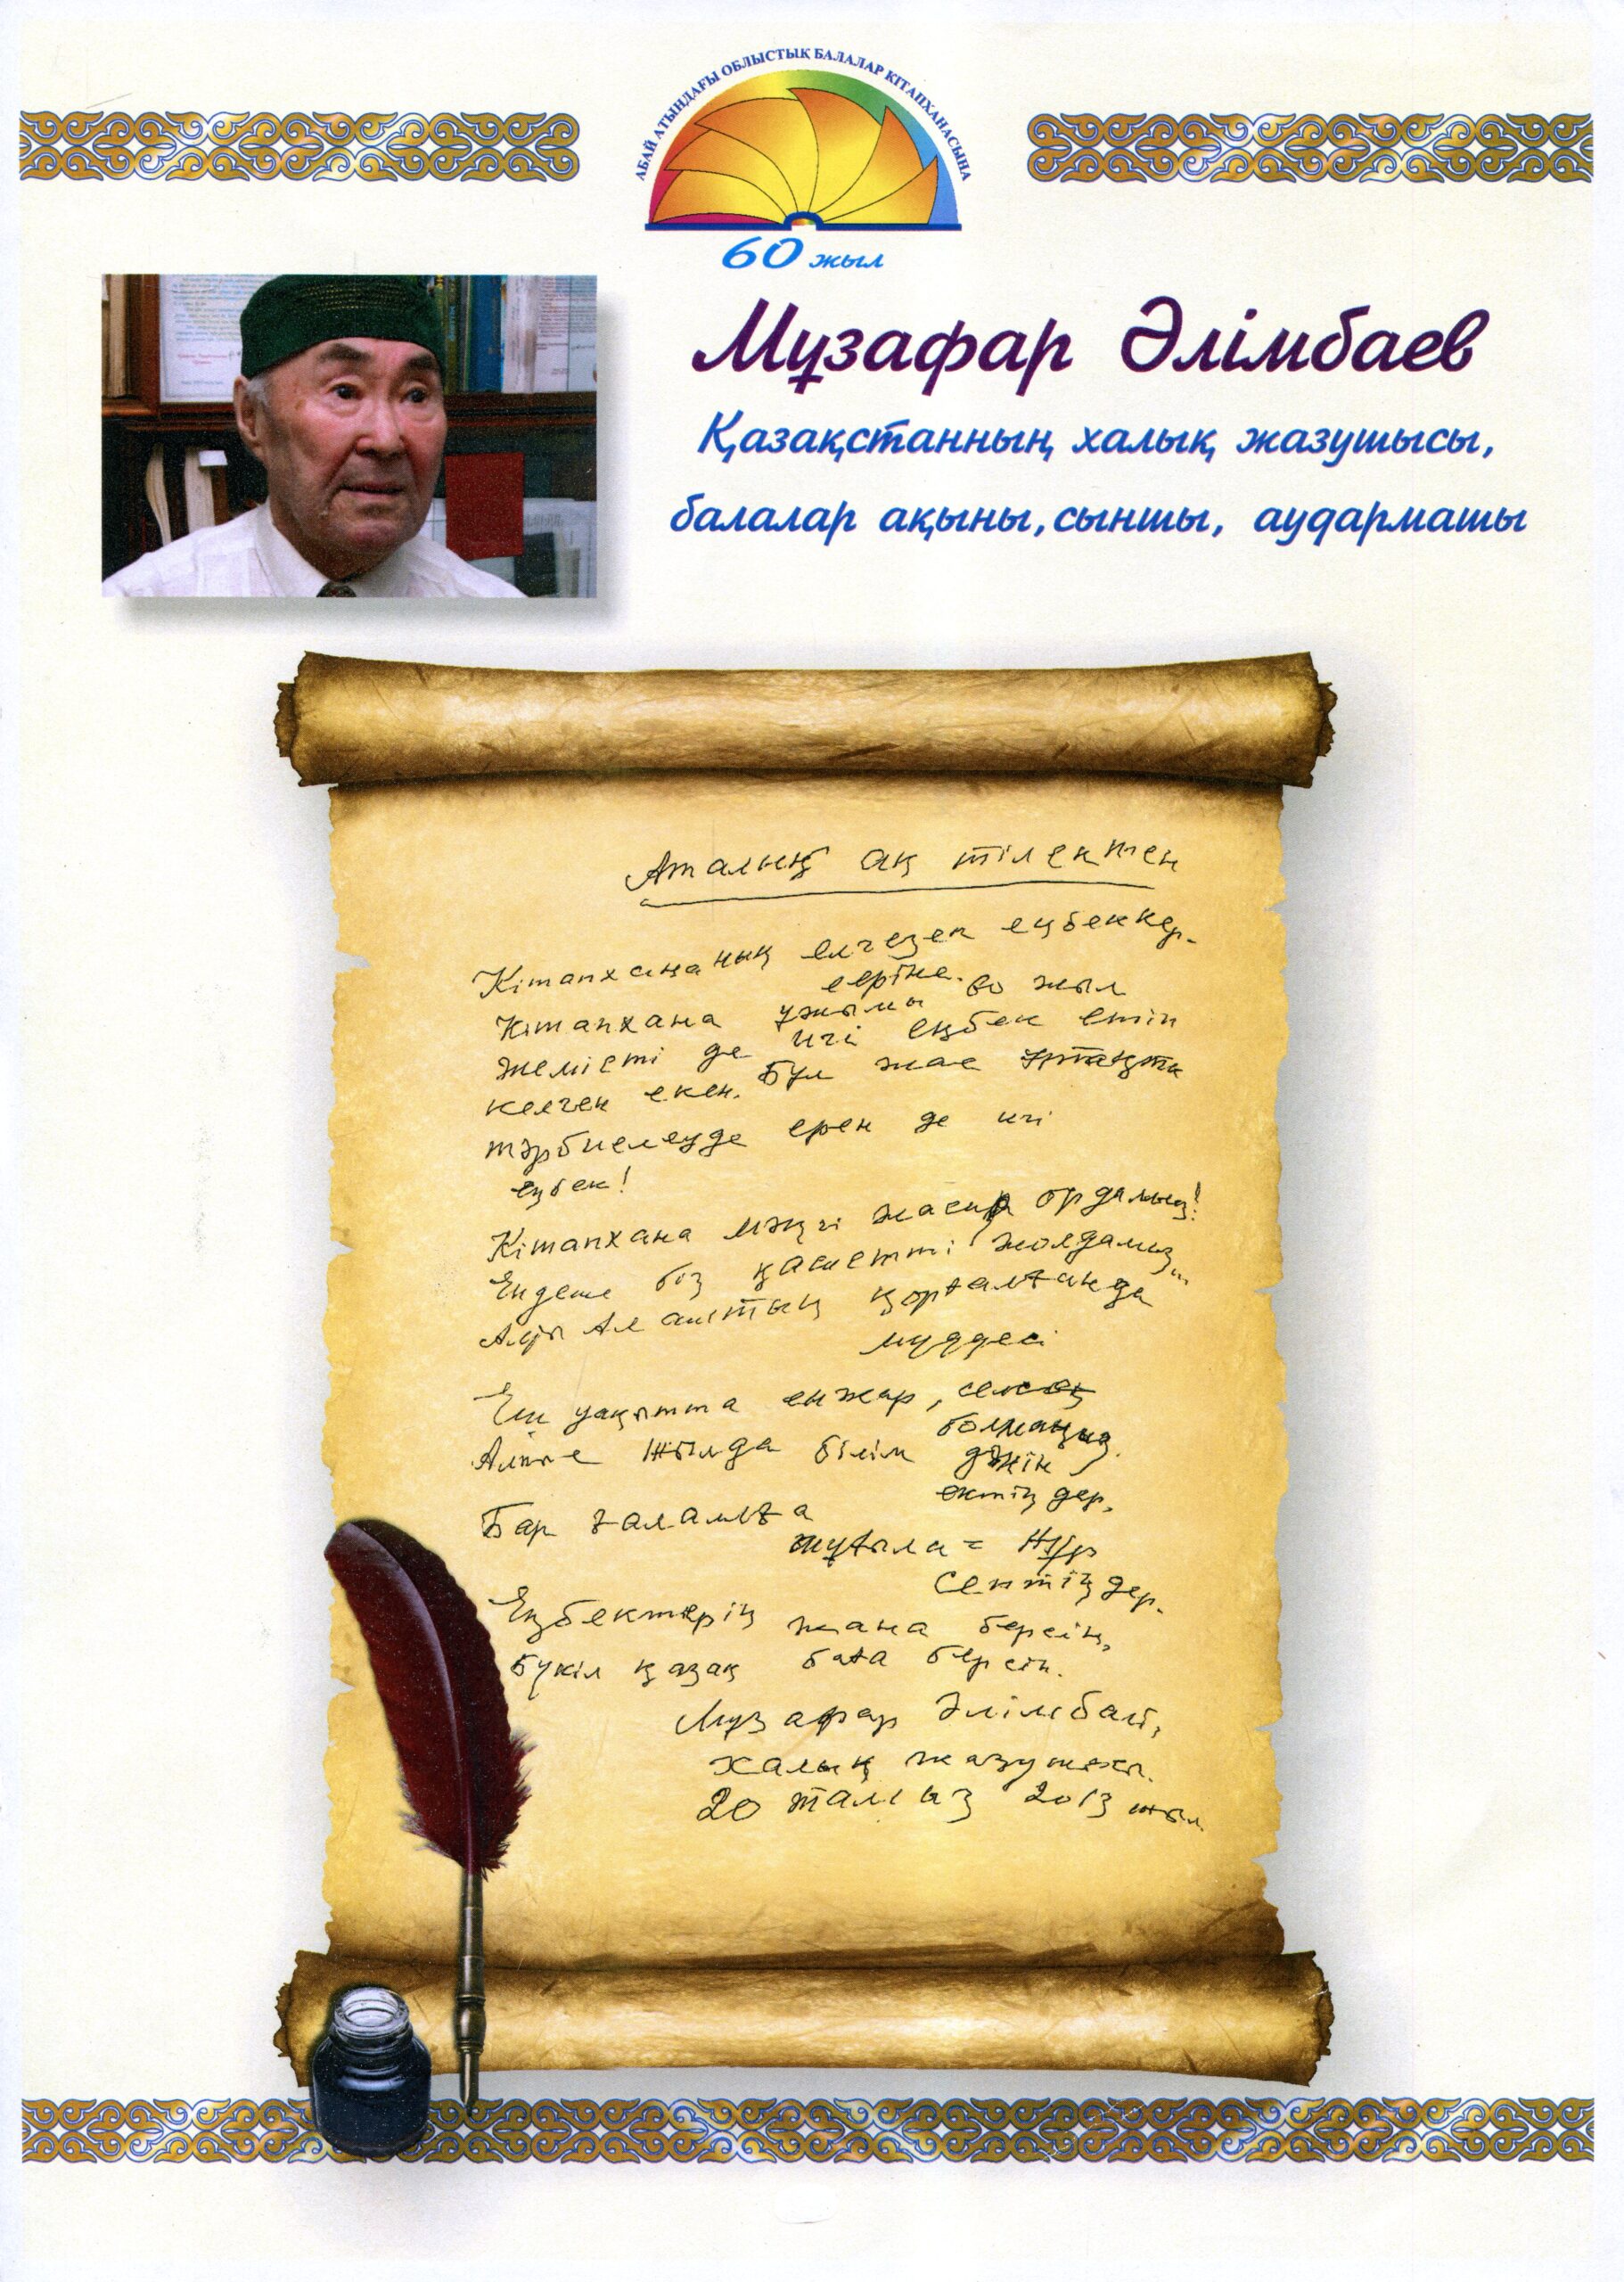 АБАЙ АТЫНДАҒЫ ОБЛЫСТЫҚ БАЛАЛАР КІТАПХАНАСЫНА
60 жыл
Мұзафар Әлімбаев
Қазақстанның халық жазушысы,
балалар ақыны, сыншы, аудармашы
Аталық ақ тілектен
Кітапхананың елгезек еңбеккер-
леріне. 60 жыл
Кітапхана ұжымы
жемісті де игі еңбек етіп
келген екен. Бұл жас ұрпақты
тәрбиелеуде ерен де игі
еңбек!
Кітапхана мәңгі жасыр ордамыз!
Ендеше біз қасиетті жолдамыз...
Алты Алаштың қорғалғанда
мүддесі
Еш уақытта енжар, селсоқ
болмаңыз.
Алпыс жылда білім дәнін
ектіңдер,
Бар ғаламға
жұғыла нұр
септіңдер.
Еңбектерің жана берсін,
Бүкіл қазақ баға берсін.
Мұзафар Әлімбай,
халық жазушысы.
20 тамыз 2013 жыл